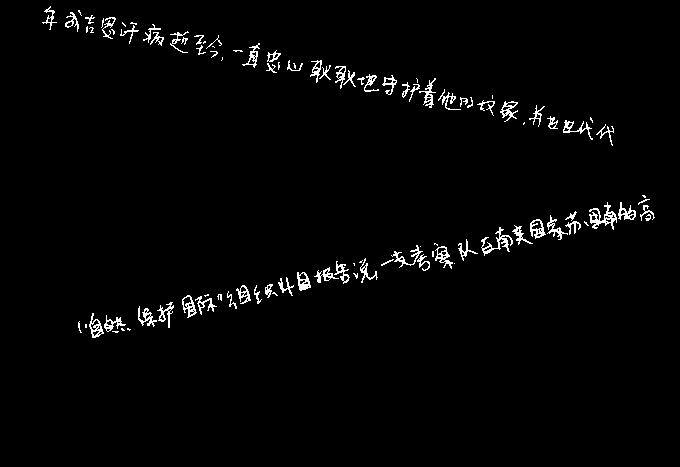 年成吉思汗病逝至今,一直忠心耿耿地守护着他的坟冢,并世世代代
“自然保护国际”组织4日报告说,一支考察队在南美国家苏里南的高